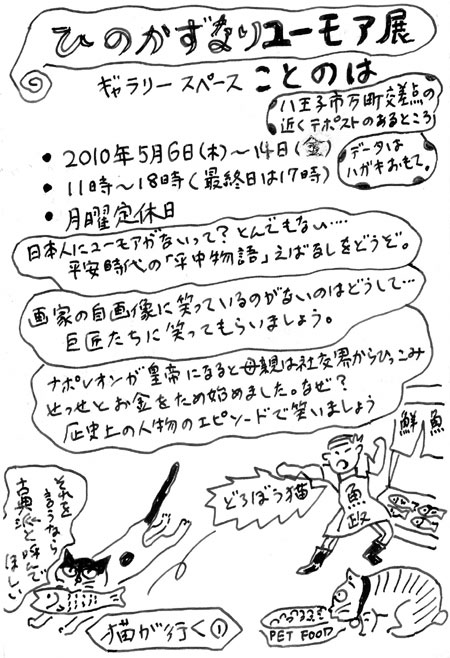 ひのかずなりユーモア展
ギャラリー スペース ことのは
八王子市万町交差点の
近くデポストのあるところ
データは
ハガキおもて。
• 2010年5月6日(木)～14日(金)
• 11時～18時(最終日は17時)
• 月曜定休日
日本人にユーモアがないって? とんでもない‥‥
平安時代の「平中物語」えばなしをどうぞ。
画家の自画像に笑っているのがないのはどうして…
巨匠たちに笑ってもらいましょう。
ナポレオンが皇帝になると母親は社交界からひっこみ
せっせとお金をため始めました。なぜ?
歴史上の人物のエピソードで笑いましょう
鮮魚
どろぼう猫
魚政
それを
言うなら
古典派と呼んで
ほしい
猫が行く①
PET FOOD